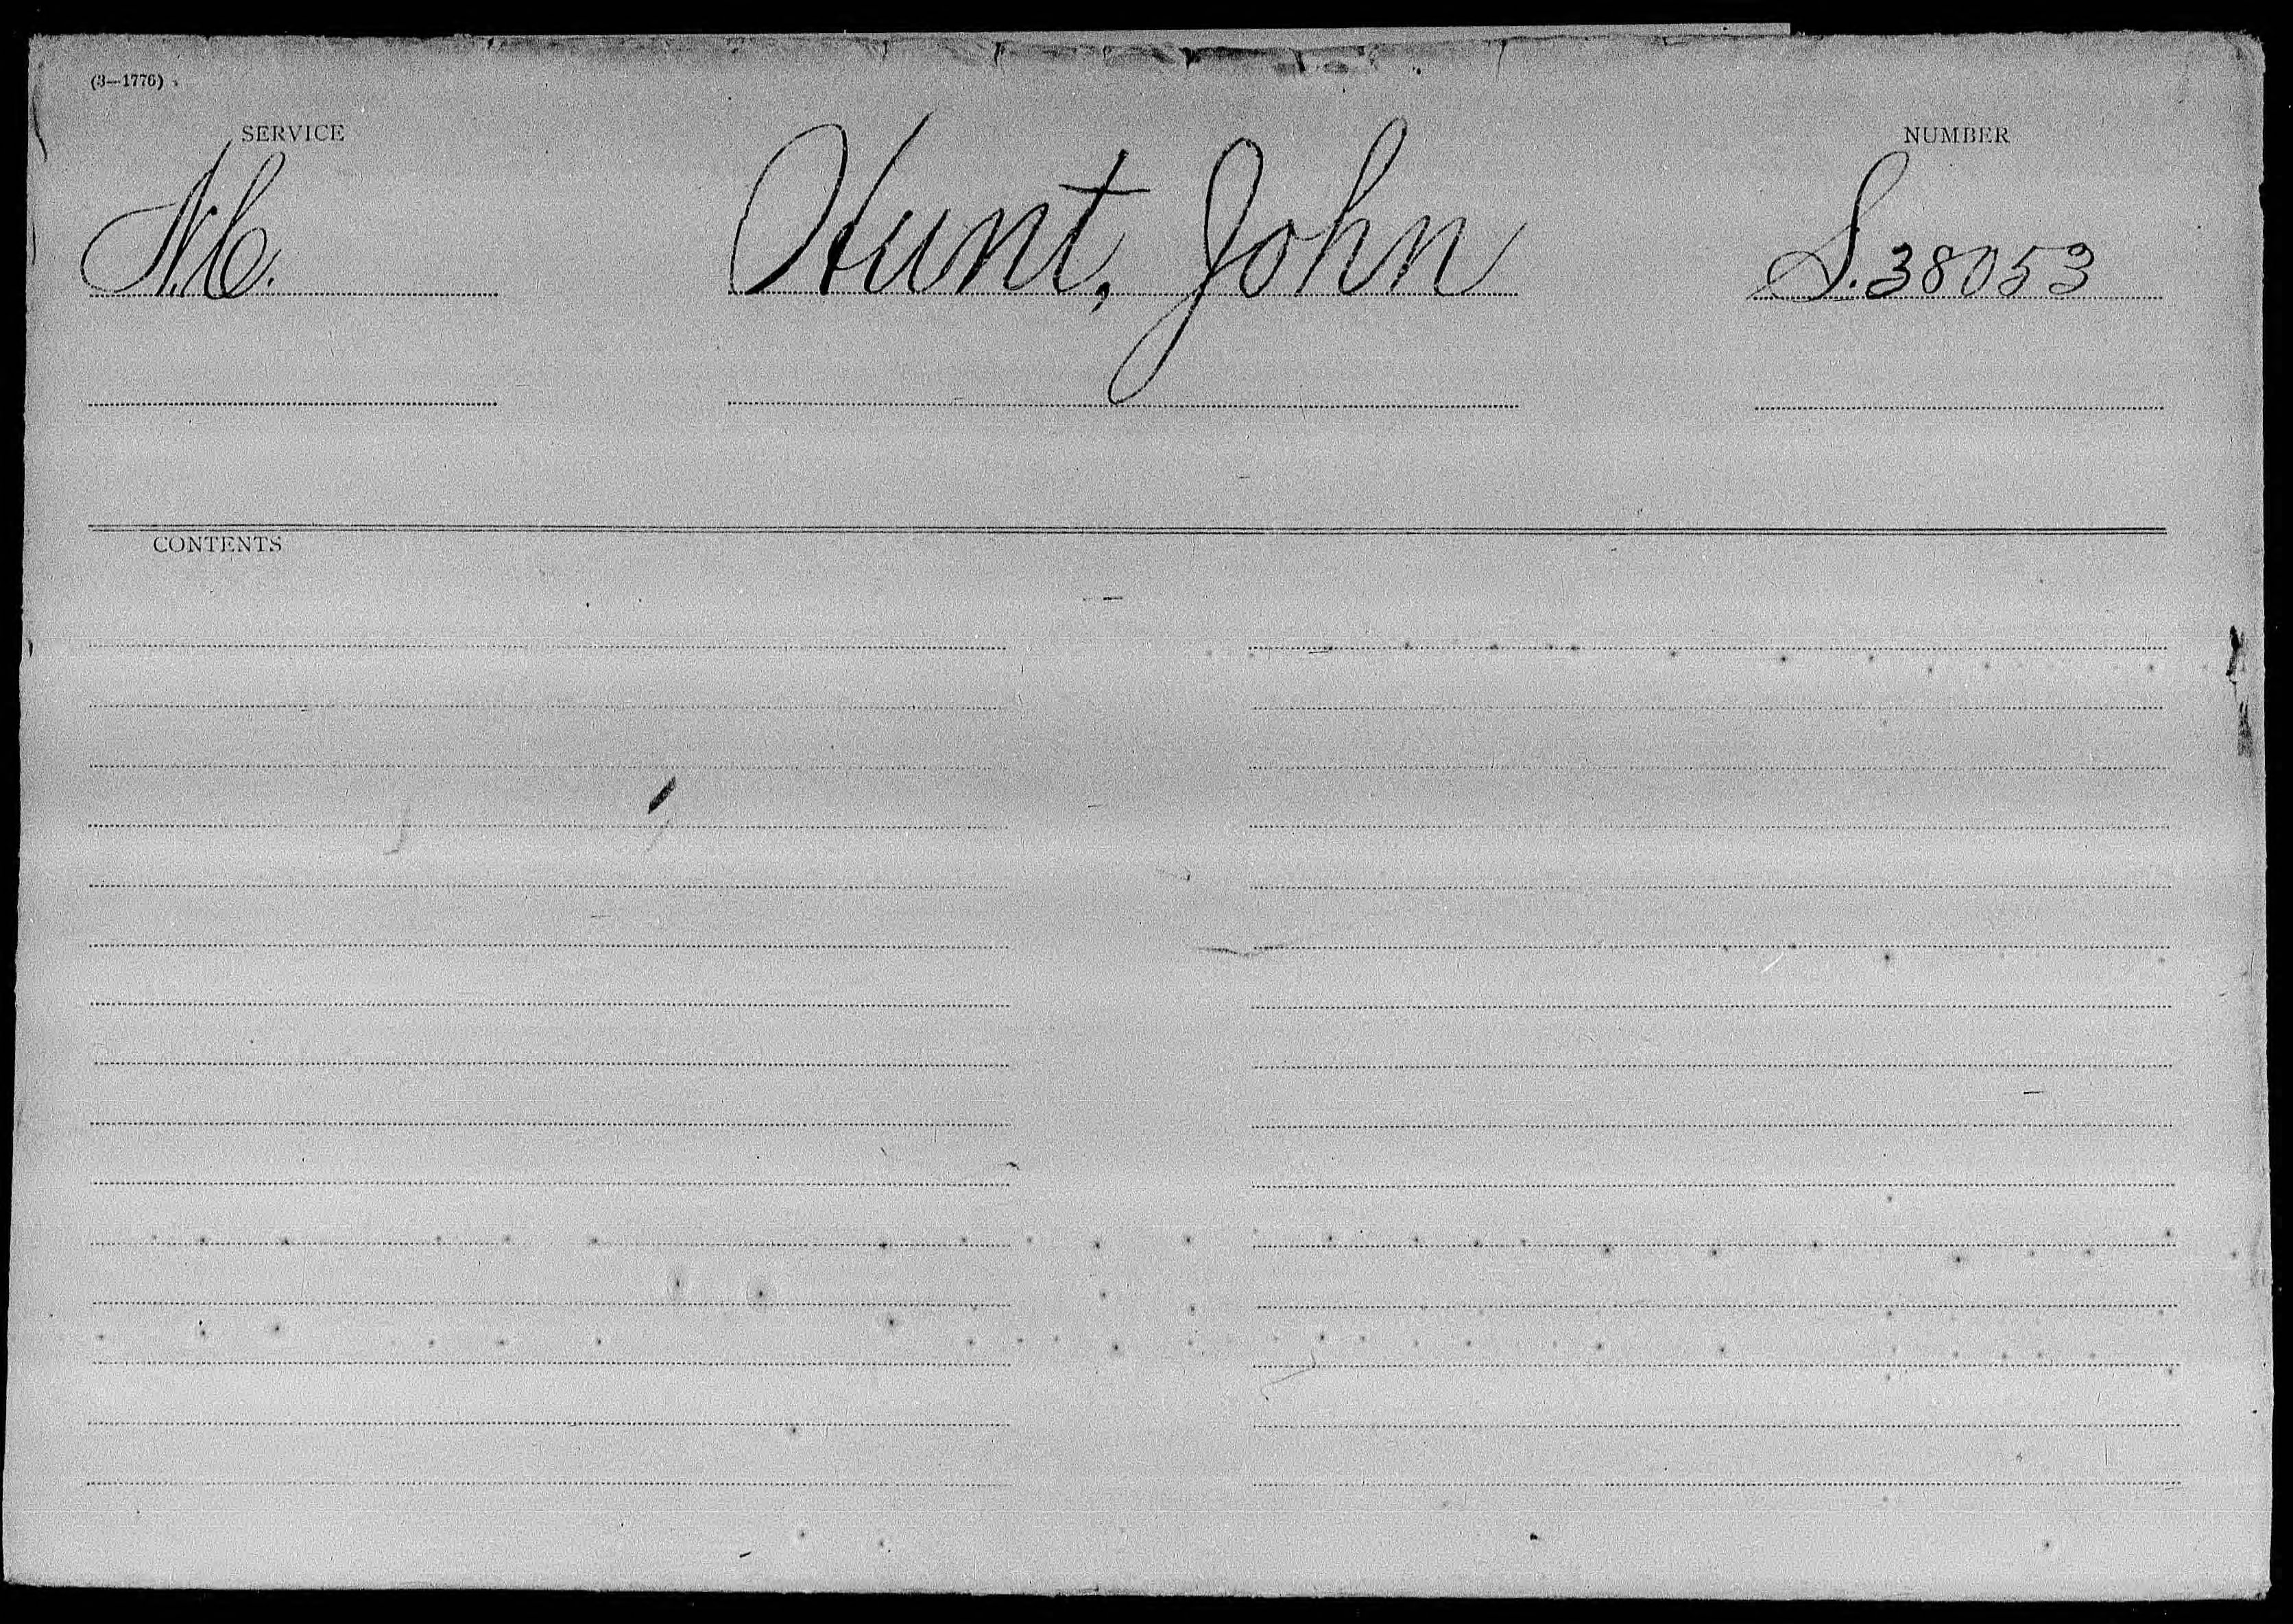 (3—1776)
SERVICE
NUMBER
N.C.
Hunt, John
S.38053
CONTENTS